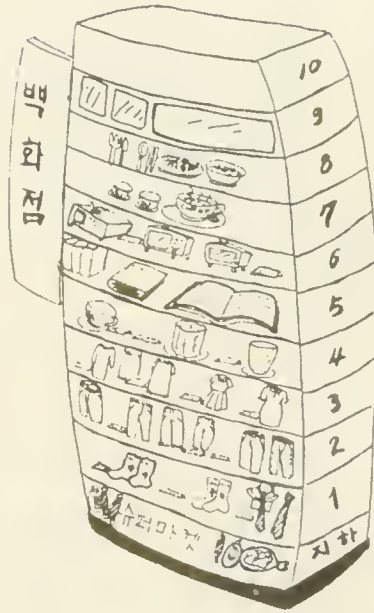 백화점
10
9
8
7
6
5
4
3
2
1
지하
슈퍼마켓